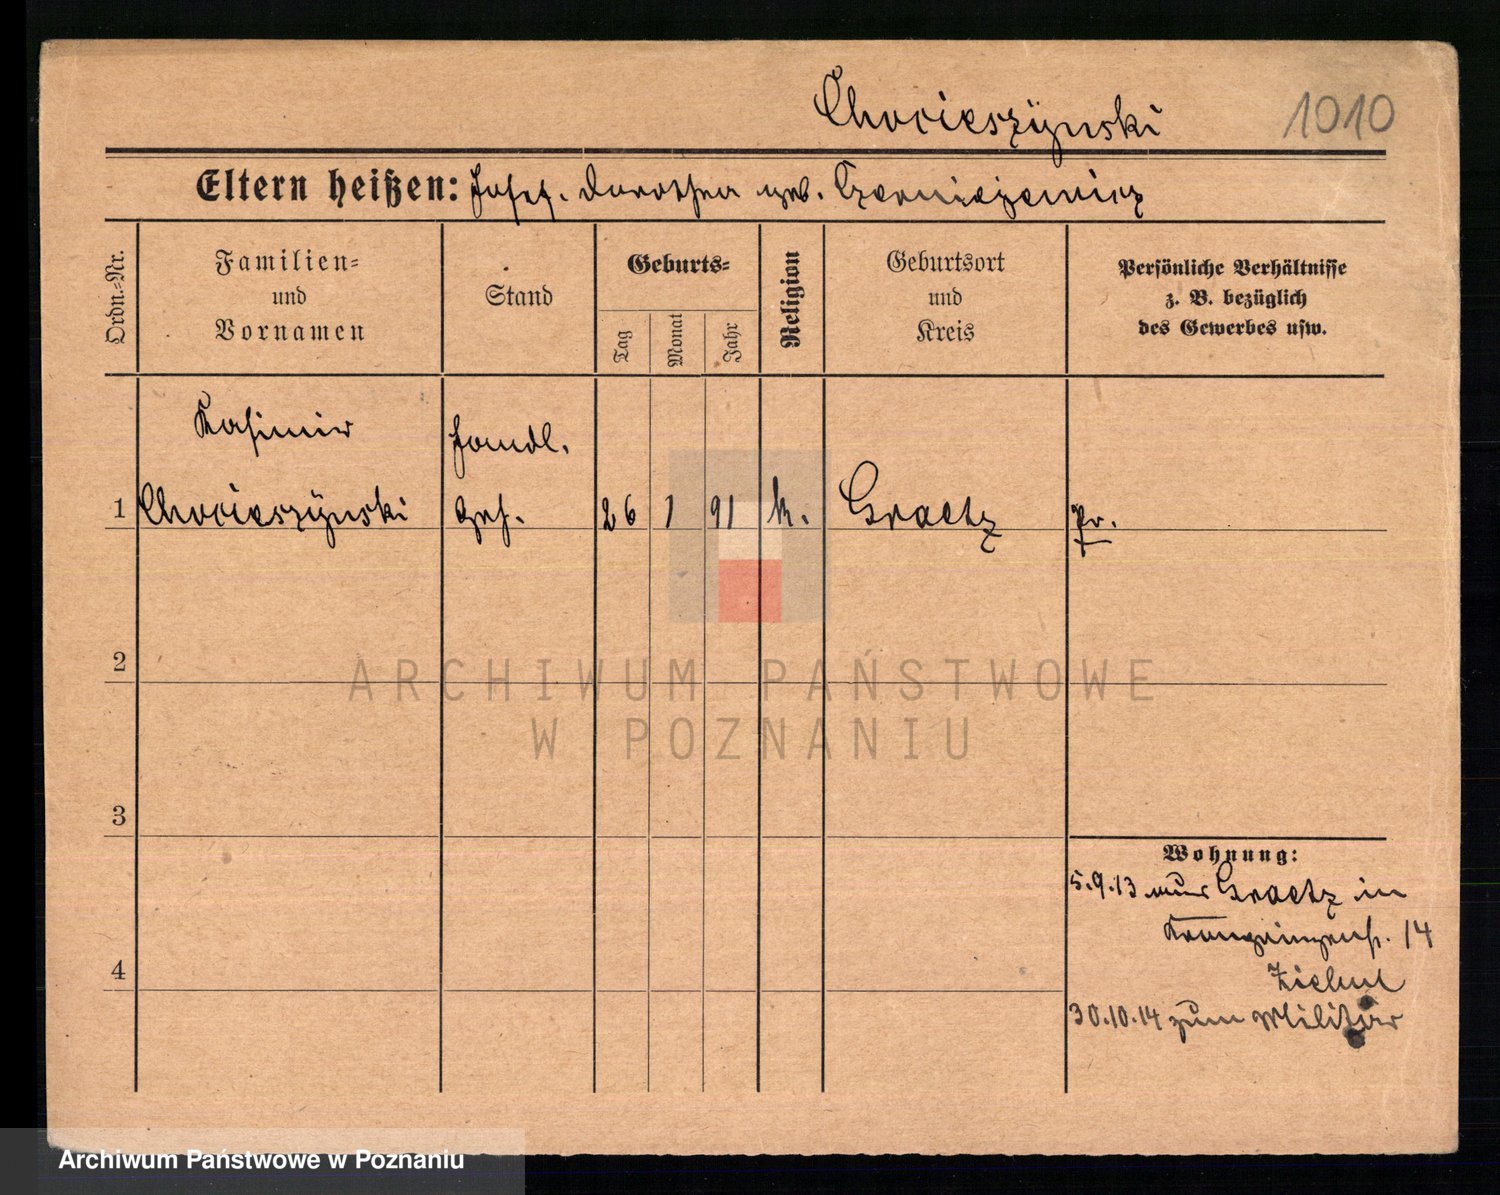 Chocieszÿnski 1010
Eltern heißen: Josef. Dorothea geb. Czerniejewicz
Ordn.-Nr.
Familien-
und
Vornamen
Stand
Geburts-
Tag
Monat
Jahr
Religion
Geburtsort
und
Kreis
Persönliche Verhältnisse
z. B. bezüglich
des Gewerbes usw.
Kasimir Handl.
1 Chocieszÿnski Geh. 26 1 91 k. Graetz Pr.
2
ARCHIWUM PAŃSTWOWE
W POZNANIU
3
Wohnung:
5.9.13 aus Graetz in
Kronprinzenst. 14
4
30.10.14 zum Militär
Archiwum Państwowe w Poznaniu